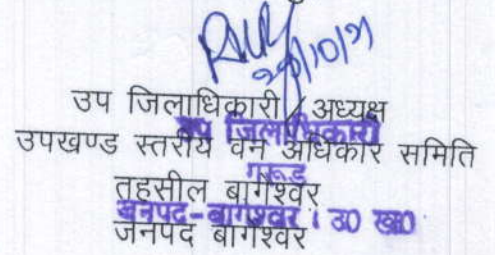 उप जिलाधिकारी / अध्यक्ष
उप जिलाधिकारी
उपखण्ड स्तरीय वन अधिकार समिति
गरूड
तहसील बागेश्वर
जनपद-बागेश्वर । उ० ख०
जनपद बागेश्वर